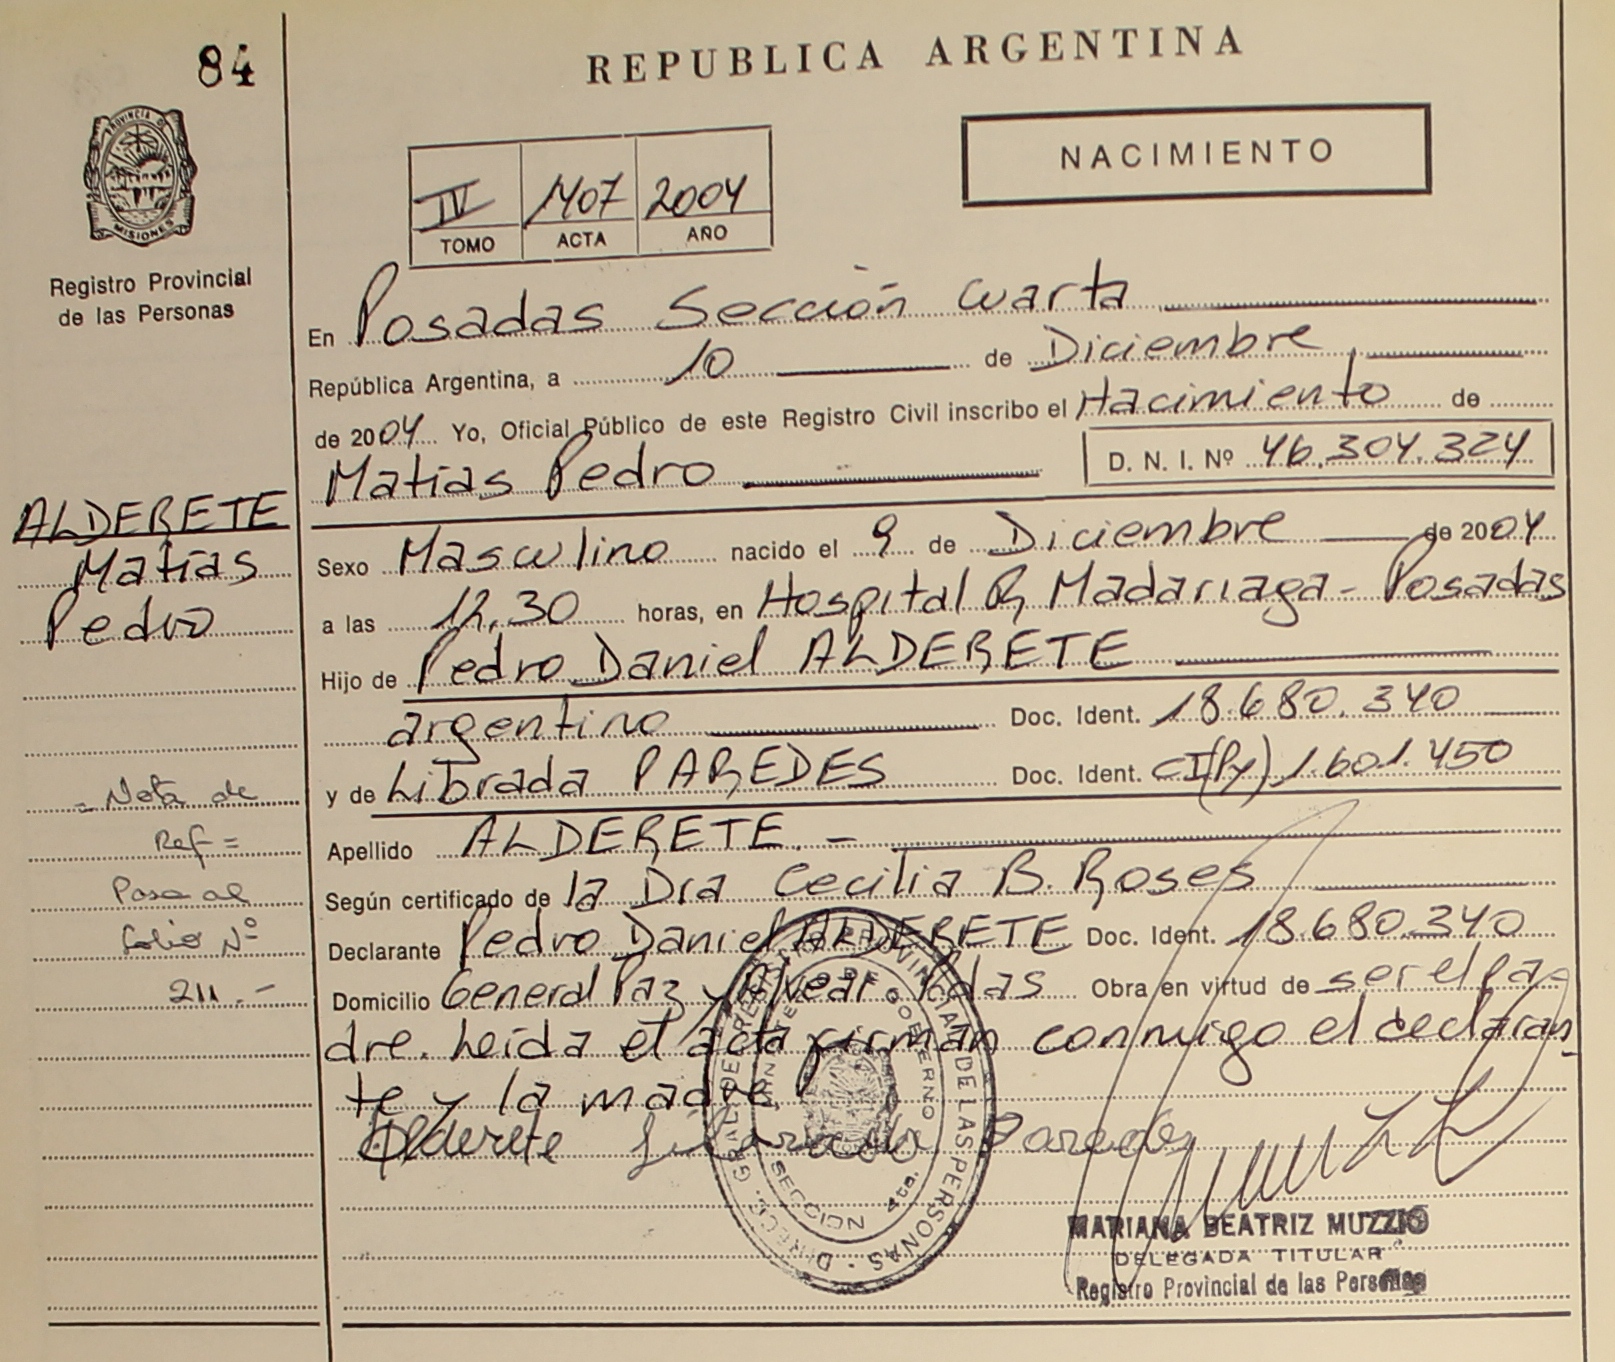 84
REPUBLICA ARGENTINA
PROVINCIA D
MISIONES
Registro Provincial
de las Personas
NACIMIENTO
IV 1407 2004
TOMO ACTA AÑO
En Posadas Sección Cuarta
República Argentina, a 10 de Diciembre
de 2004 Yo, Oficial Público de este Registro Civil inscribo el Nacimiento de
Matias Pedro D. N. I. Nº 46.304.324
ALDERETE
Matias
Pedro
Sexo Masculino nacido el 9 de Diciembre de 2004
a las 12,30 horas, en Hospital R Madariaga - Posadas
Hijo de Pedro Daniel ALDERETE
argentino Doc. Ident. 18.680.340
y de Librada PAREDES Doc. Ident. CI(Py) 1.601.450
Apellido ALDERETE.-
Según certificado de la Dra Cecilia B. Roses
Declarante Pedro Daniel ALDERETE Doc. Ident. 18.680.340
Domicilio General Paz y Alvear Pdas Obra en virtud de ser el pa-
dre. Leída el acta firman conmigo el declaran-
te y la madre.
= Nota de
Ref =
Pasa al
folio Nº
211.-
Alderete Librada Paredes
SECCION 4ta.
MARIANA BEATRIZ MUZZIO
DELEGADA TITULAR
Registro Provincial de las Personas